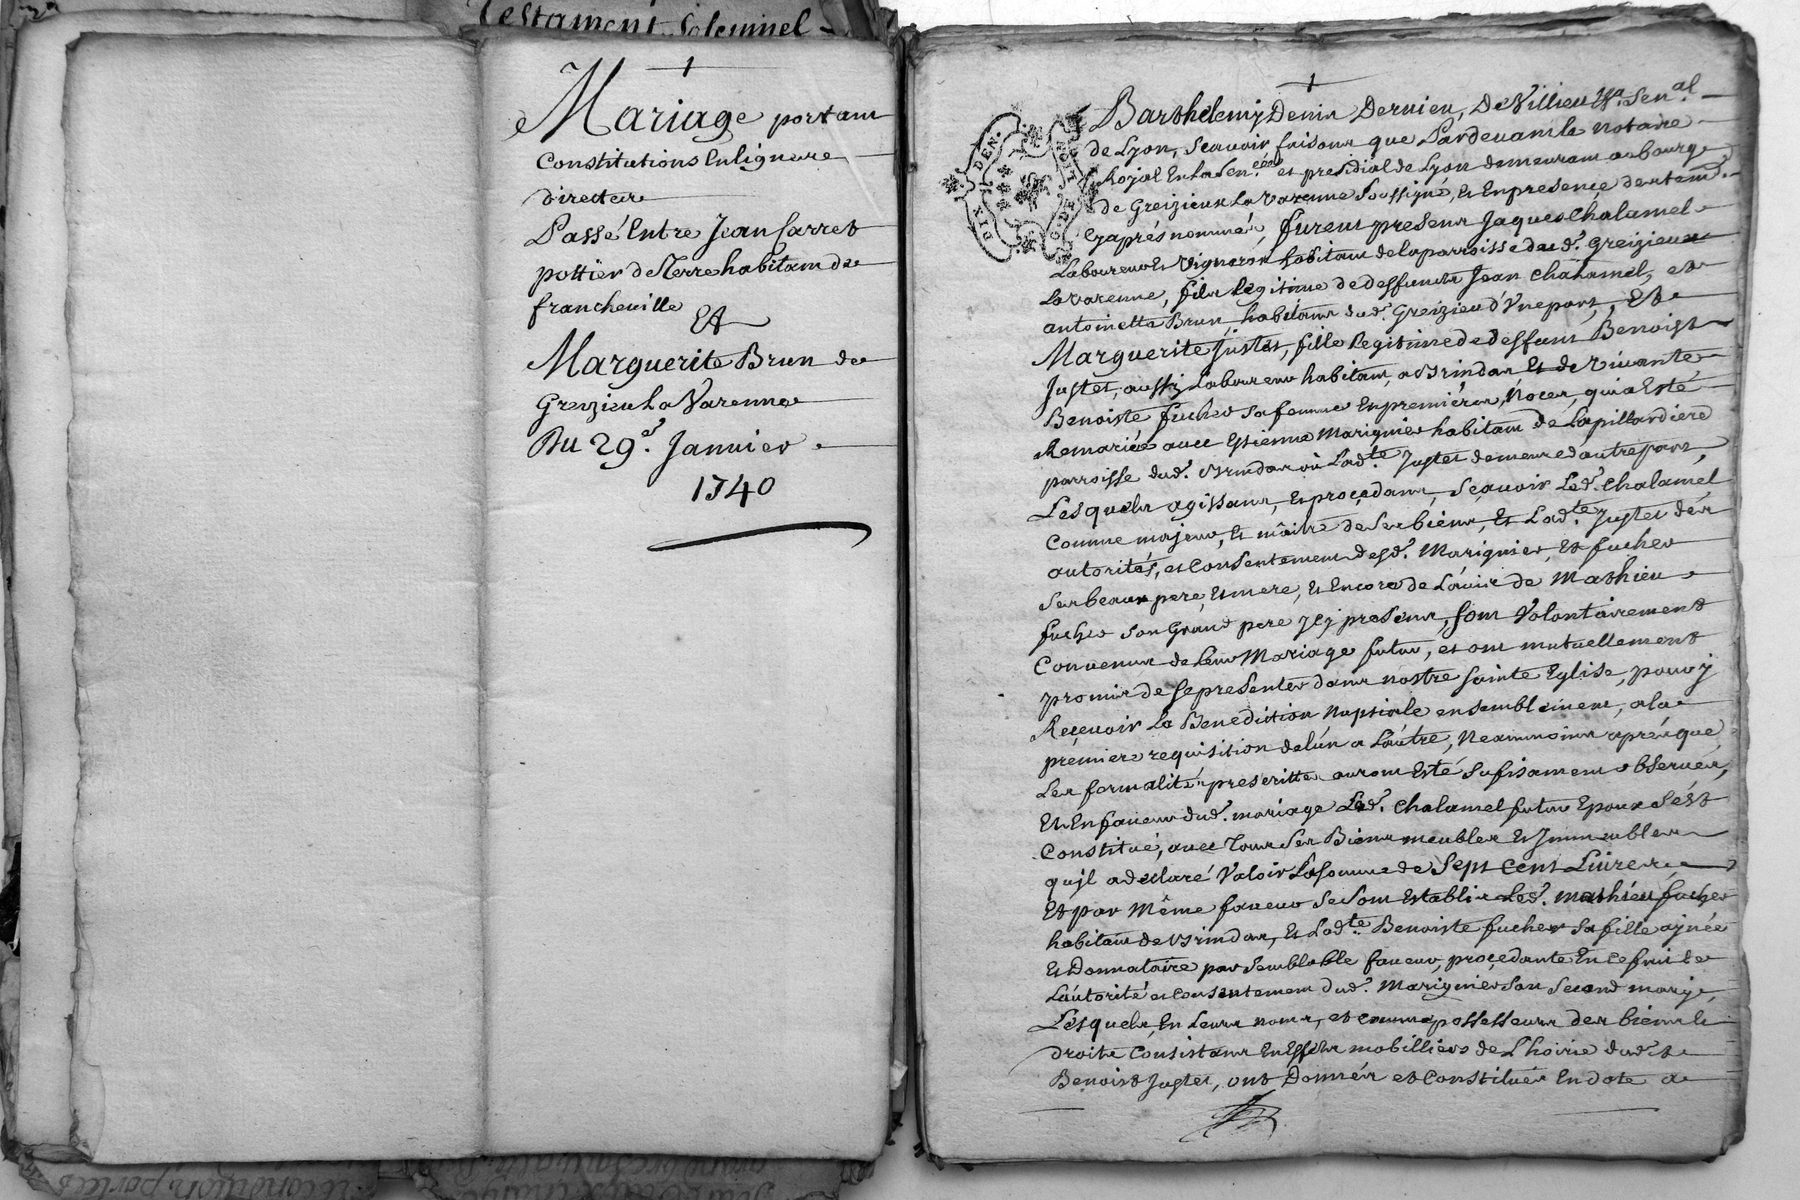 Testament Solemnel
Mariage portant
Constitutions En ligne
directe
Passé Entre Jean Carret
pottier de Terre habitant de
francheville
Et
Marguerite Brun de
Greizieu La Varenne
Du 29e. Janvier
1740
DIX DEN.
G. DE LYON
Barthelemy Denis Dervieu, De Villieu Sen.al
de Lyon, Scavoir faisons que Pardevant le notaire
Royal En la Sen.cée et presidial de Lyon demeurant au bourg
de Greizieux La Varenne Soussigné, Et En presence des tem.
Cy aprés nommés, furent presens Jaques Chalamel
Laboureur Et Vigneron habitant de la parroisse dud. Greizieux
La varenne, fils legitime de deffuncts Jean Chalamel, et
antoinette Brun habitans dud. Greizieu d'Une part, Et
Marguerite Justet, fille Legitime de deffunt Benoist
Justet, aussy Laboureur habitant a Brindas Et de vivante
Benoiste fucher sa femme En premieres Noces, qui a Esté
Remariée avec Estienne Marignier habitant de Lapillardiere
parroisse dud. Brindas où Lad.te Justet demeure d'autre part,
Lesquels agissans, Et proçedans, Sçavoir Led. Chalamel
Comme majeur, Et maitre de Ses biens, Et Lad.te Justet dés
autorités, et Consentement desd. Marignier, Et fucher
Ses beaux pere, Et mere, Et Encore de L'avis de Mathieu
fucher son Grand pere Jcy presens, sont Volontairement
Convenus de Leur Mariage futur, et ont mutuellement
promis de se presenter dans nostre sainte Eglise, pour y
Reçevoir La Benediction Nuptiale ensemblement, a la
premiere requisition de l'un a L'autre, Neanmoins aprés que
Les formalités prescrittes auront Esté sufisament observées,
Et En faveur dud. mariage Led. Chalamel futur Epoux s'est
Constitué, avec Tous Ses Biens meubles Et Immeubles
qu'jl a declaré Valoir La somme de Sept Cent Livres
Et par Même faveur Se sont Establis Led. Mathieu fucher
habitant de Brindas, Et Lad.te Benoiste fucher Sa fille aynée
Et Donnataire par semblable faveur, proçedante En ce fait de
L'autorité et Consentement dud. Marignier son Second mary,
Lesquels En Leurs noms, et comme possesseurs des biens &
droits Consistans En Effets mobilliers de L'hoirie dud.
Benoist Justet, ont Donnés et Constitués En dote a